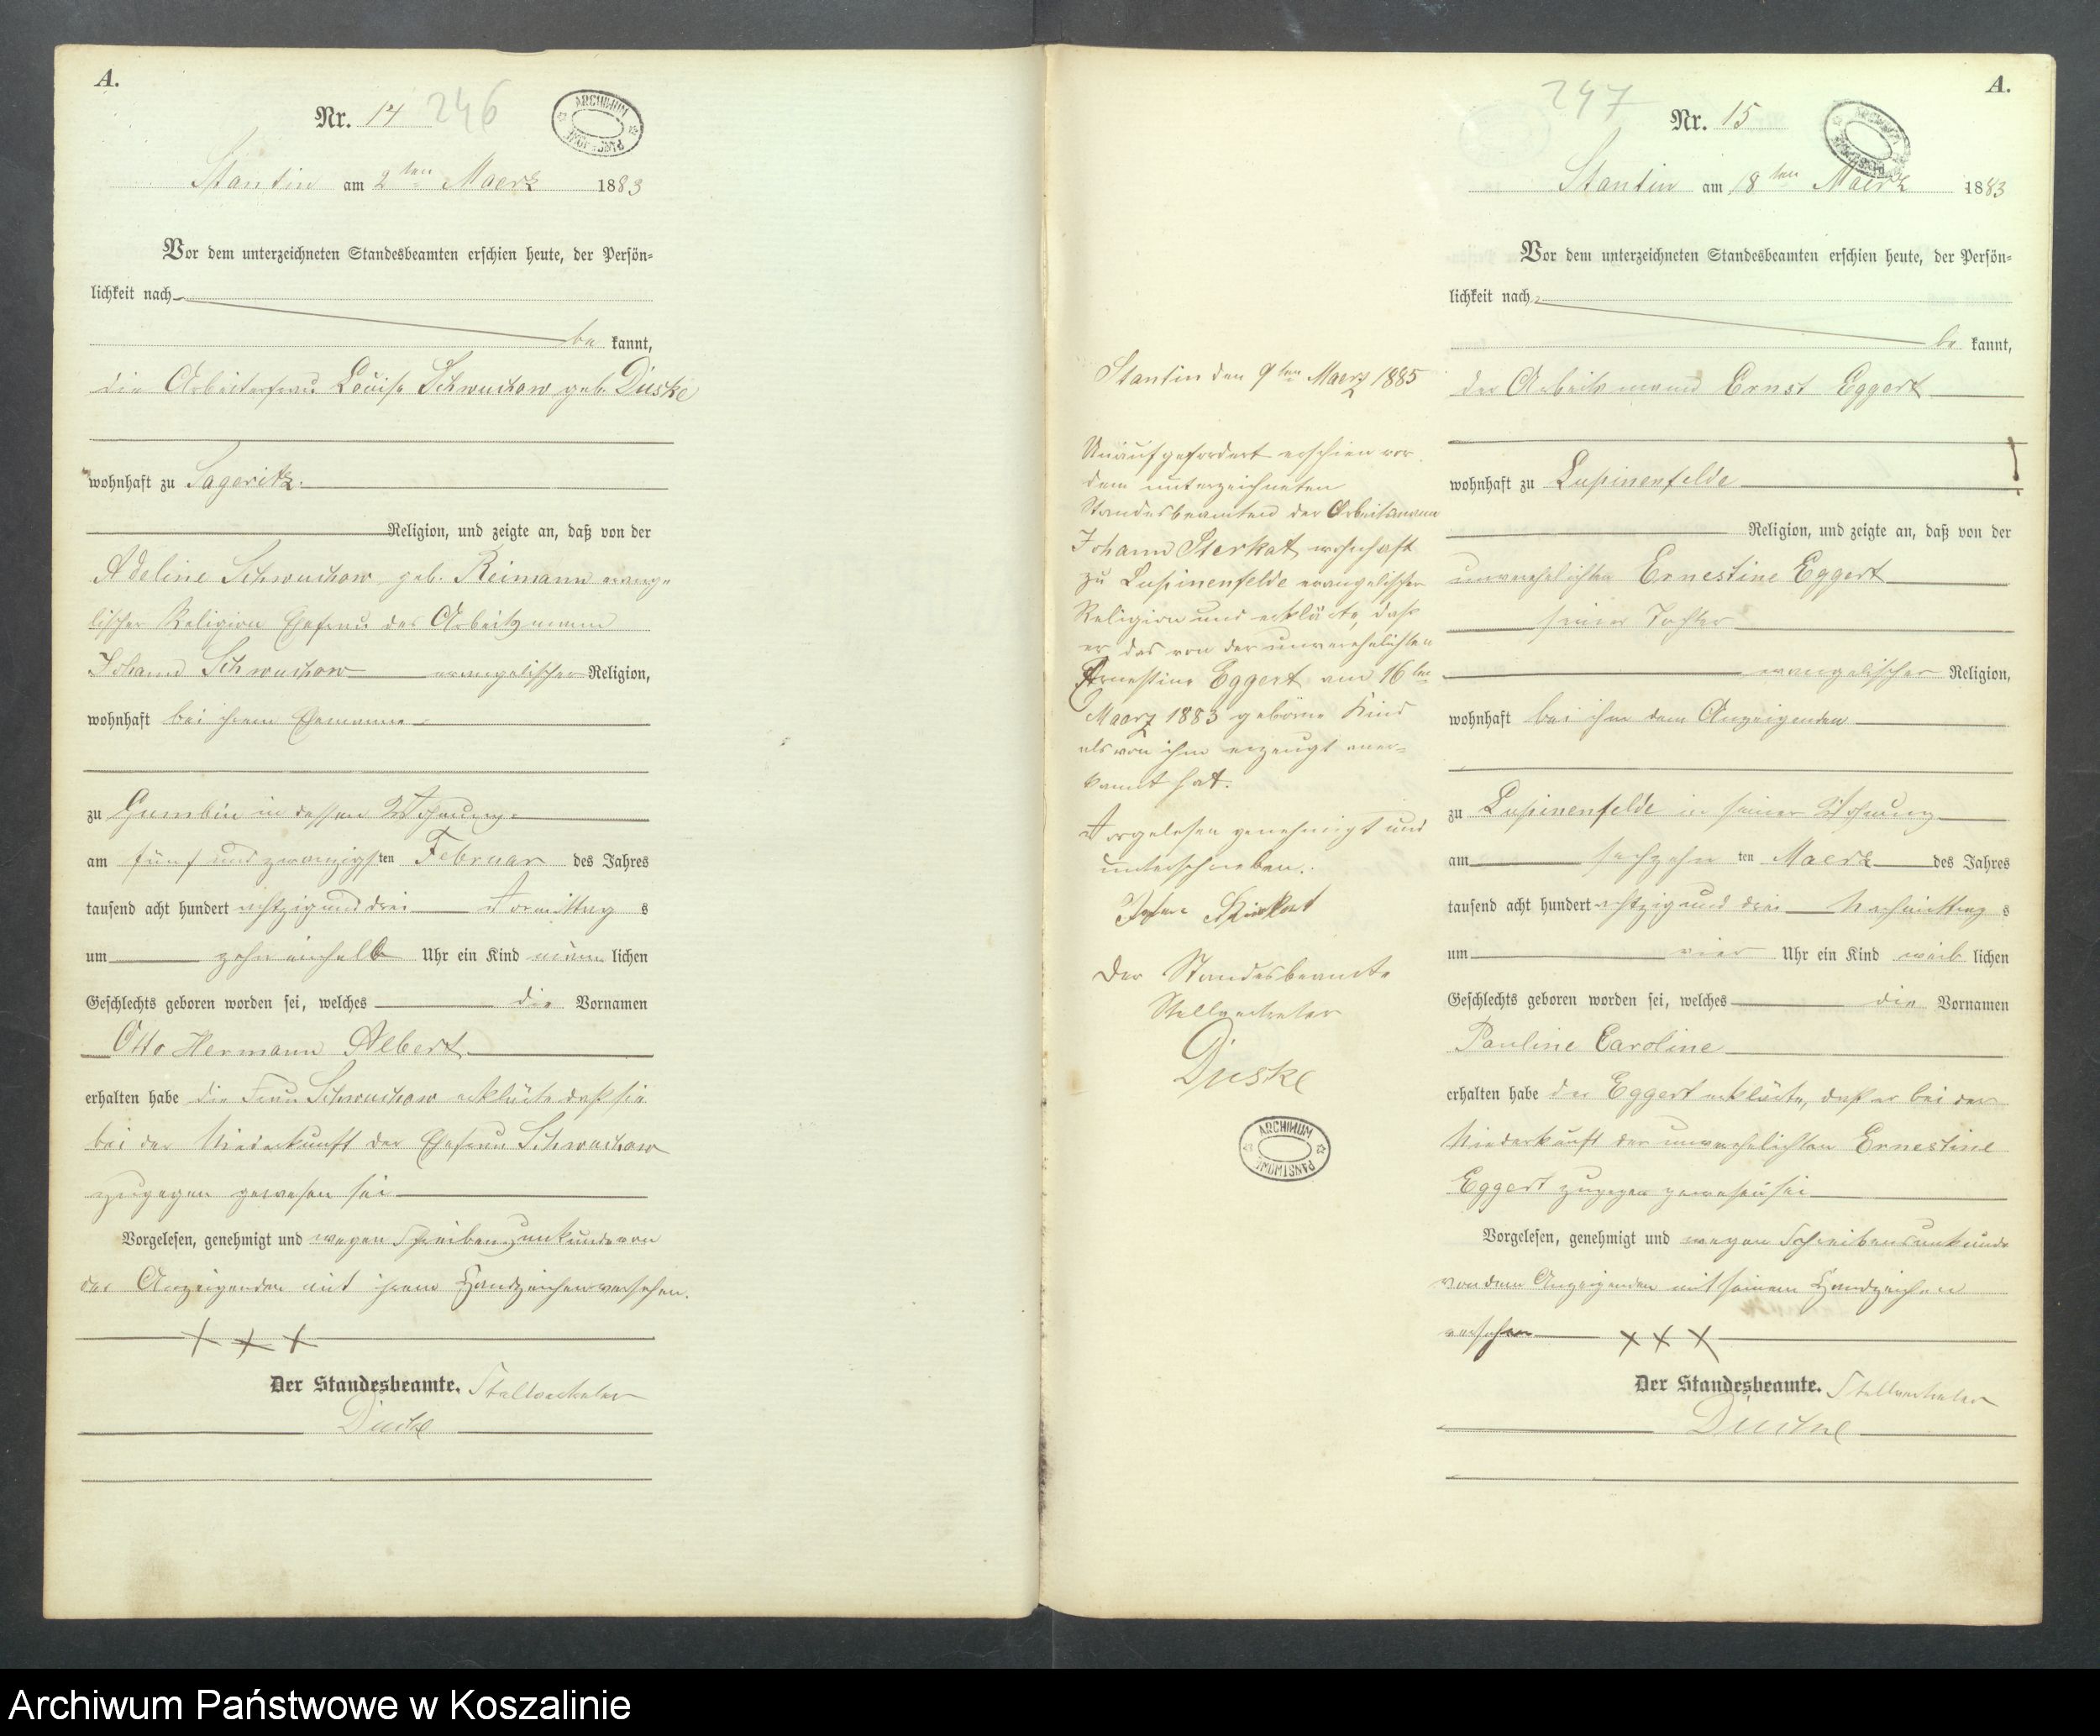 A.
Nr. 14 246
ARCHIWUM PAŃSTWOWE
Stantin am 2ten Maerz 1883
Vor dem unterzeichneten Standesbeamten erschien heute, der Persön=
lichkeit nach
be kannt,
die Arbeiterfrau Louise Schwuchow geb. Duske
wohnhaft zu Sageritz
Religion, und zeigte an, daß von der
Adeline Schwuchow geb. Reimann evange=
lischer Religion Ehefrau des Arbeitsmann
Johann Schwuchow evangelischer Religion,
wohnhaft bei ihrem Ehemanne
zu Gumbin in dessen Wohnung
am fünf und zwanzigsten Februar des Jahres
tausend acht hundert achtzig und drei Vormittag s
um zehn einhalb Uhr ein Kind männ lichen
Geschlechts geboren worden sei, welches die Vornamen
Otto Hermann Albert
erhalten habe die Frau Schwuchow erklärte daß sie
bei der Niederkunft der Ehefrau Schwuchow
zugegen gewesen sei
Vorgelesen, genehmigt und wegen Schreibensunkunde von
der Anzeigenden mit ihrem Handzeichen versehen.
+ + +
Der Standesbeamte. Stellvertreter
Duske
A.
247
Nr. 15
ARCHIWUM PAŃSTWOWE
Stantin am 18ten Maerz 1883
Vor dem unterzeichneten Standesbeamten erschien heute, der Persön=
lichkeit nach
be kannt,
der Arbeitsmann Ernst Eggert
wohnhaft zu Lupinenfelde
Religion, und zeigte an, daß von der
unverehelichten Ernestine Eggert
seiner Tochter
evangelischer Religion,
wohnhaft bei ihm dem Anzeigenden
zu Lupinenfelde in seiner Wohnung
am sechzehn ten Maerz des Jahres
tausend acht hundert achtzig und drei Nachmittag s
um vier Uhr ein Kind weib lichen
Geschlechts geboren worden sei, welches die Vornamen
Pauline Caroline
erhalten habe der Eggert erklärte, daß er bei der
Niederkunft der unverehelichten Ernestine
Eggert zugegen gewesen sei
Vorgelesen, genehmigt und wegen Schreibensunkunde
von dem Anzeigenden mit seinem Handzeichen
versehen + + +
Der Standesbeamte. Stellvertreter
Duske
Stantin den 9ten Maerz 1885
Unaufgefordert erschien vor
dem unterzeichneten
Standesbeamten der Arbeitsmann
Johann Sterkat wohnhaft
zu Lupinenfelde evangelischer
Religion und erklärte, daß
er das von der unverehelichten
Ernestine Eggert am 16ten
Maerz 1883 geborne Kind
als von ihm erzeugt aner=
kannt hat.
Vorgelesen genehmigt und
unterschrieben.
Der Standesbeamte
Stellvertreter
Duske
ARCHIWUM PAŃSTWOWE
Archiwum Państwowe w Koszalinie